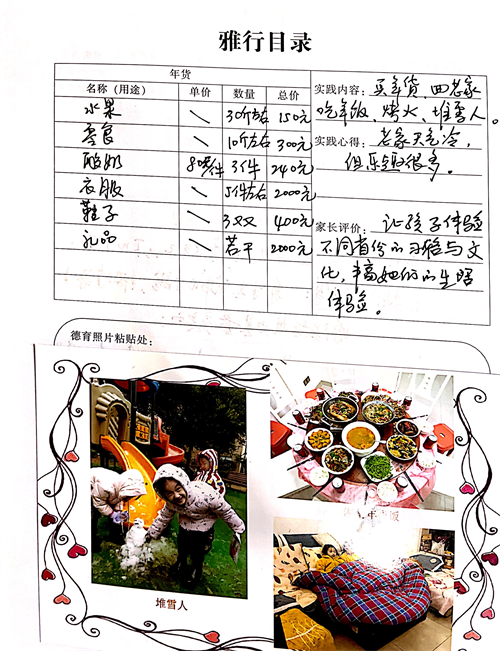 雅行目录
年货
名称（用途） 单价 数量 总价
水果 \ 30斤左右 150元
零食 \ 10斤左右 300元
酸奶 80元/件 3件 240元
衣服 \ 5件左右 2000元
鞋子 \ 3双 400元
礼品 \ 若干 2000元
实践内容：买年货、回老家
吃年饭、烤火、堆雪人。
实践心得：老家天气冷，
但乐趣很多。
家长评价：让孩子体验
不同省份的习俗与文
化，丰富她们的生活
体验。
德育照片粘贴处：
堆雪人